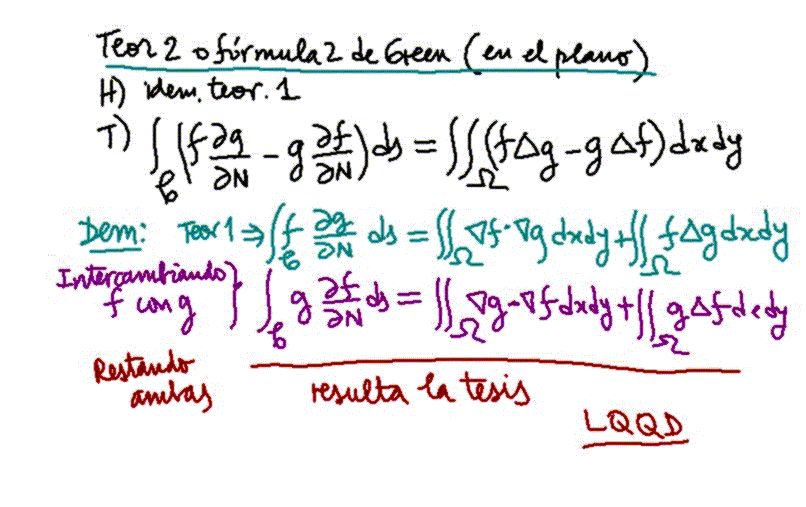 Teor 2 o fórmula 2 de Green (en el plano)
H) idem. teor. 1
T) ∫_C (f ∂g/∂N - g ∂f/∂N) ds = ∬_Ω (f Δg - g Δf) dx dy
Dem: Teor 1 ⇒ ∫_C f ∂g/∂N ds = ∬_Ω ∇f·∇g dx dy + ∬_Ω f Δg dx dy
Intercambiando f con g } ∫_C g ∂f/∂N ds = ∬_Ω ∇g·∇f dx dy + ∬_Ω g Δf dx dy
Restando ambas resulta la tesis
LQQD